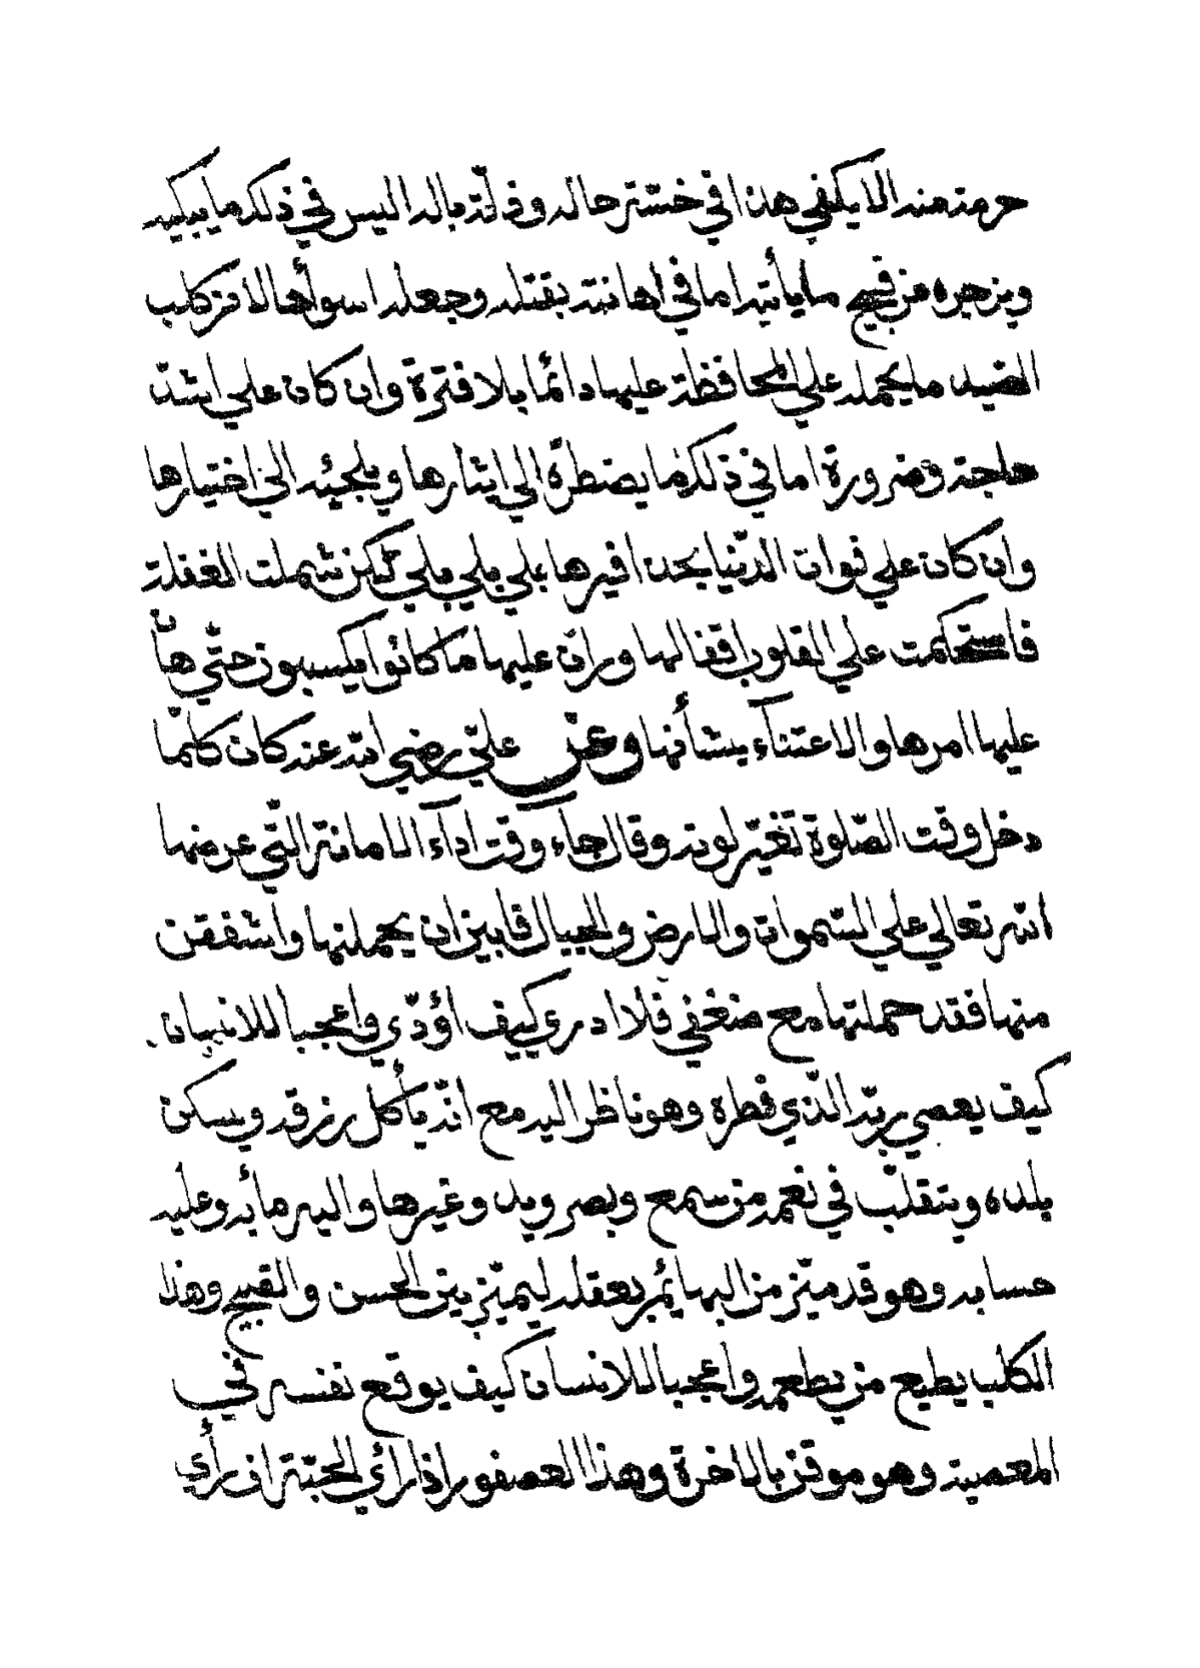 حرمة منه الا يكفي هذا في خسّة حاله وذلّة باله اليس في ذلك ما يبكيه
ويزجره من قبيح ما يأتيه اما في اهانته بقتله وجعله اسوأ حالا من كلب
الصّيد ما يحمله علي المحافظة عليها دائما بلا فترة وان كان علي اشدّ
حاجة وضرورة اما في ذلك ما يضطرّه الي ايثارها ويلجئه الي اختيارها
وان كان علي فوات الدّنيا بحذافيرها بلي بلي بلي لكن شملت الغفلة
فاستحكمت علي القلوب اقفالها وران عليها ما كانوا يكسبون حتّي هان
عليها امرها والاعتنآء بشأنها وعن عليّ رضي الله عنه كان كلّما
دخل وقت الصّلوة تغيّر لونه وقال جآء وقت ادآء الامانة التّي عرضها
الله تعالي علي السّموات والارض والجبال فابين ان يحملنها واشفقن
منها فقد حملتها مع ضعفي فلا ادري كيف اؤدّي واعجبا للانسان
كيف يعصي ربّه الّذي فطره وهو ناظر اليه مع انّه يأكل رزقه ويسكن
بلده ويتقلّب في نعمه من سمع وبصر ويد وغيرها واليه مأبه وعليه
حسابه وهو قد ميّز من البهايم بعقله ليميّز بين الحسن والقبيح وهذا
الكلب يطيع من يطعمه واعجبا للانسان كيف يوقع نفسه في
المعصية وهو موقن بالاخرة وهذا العصفور اذا رأي الحبّة ان رأي